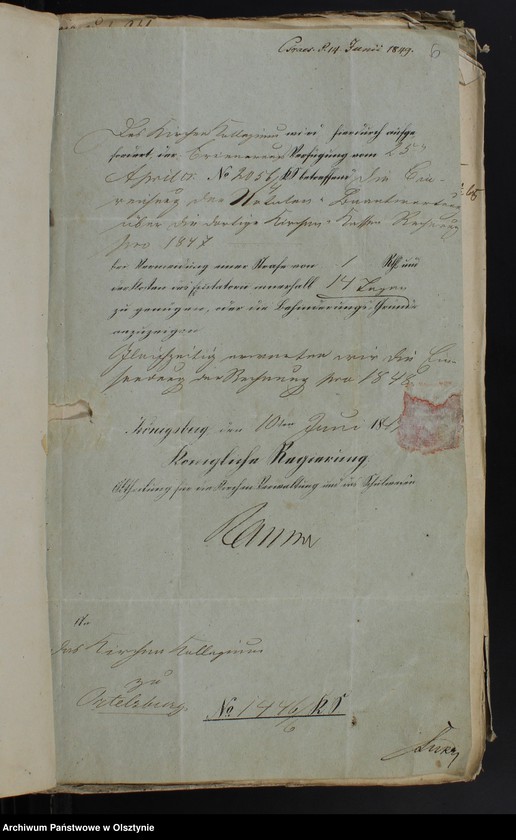 Praes. d. 14. Junii 1849.
6
Das Kirchen Kollegium wird hierdurch aufge-
fordert, der Erinnerung Verfügung vom 25ten
April cr. No 2056/4 KS betreffend die Ein-
reichung der Notaten-Beantwortung
über die dortige Kirchen-Kassen Rechnung
pro 1847
bei Vermeidung einer Strafe von 1 Rthl. und
der Kosten des innerhalb 14 Tagen
zu genügen, oder die Behinderungs-Gründe
anzuzeigen
Gleichzeitig erwarten wir die Ein-
sendung der Rechnung pro 1848.
Königsberg den 10ten Juni 18
Königliche Regierung
Abtheilung für die Kirchen-Verwaltung und das Schulwesen
An
das Kirchen Kollegium
zu
Ortelsburg.
No 1446/6 KS
Archiwum Państwowe w Olsztynie